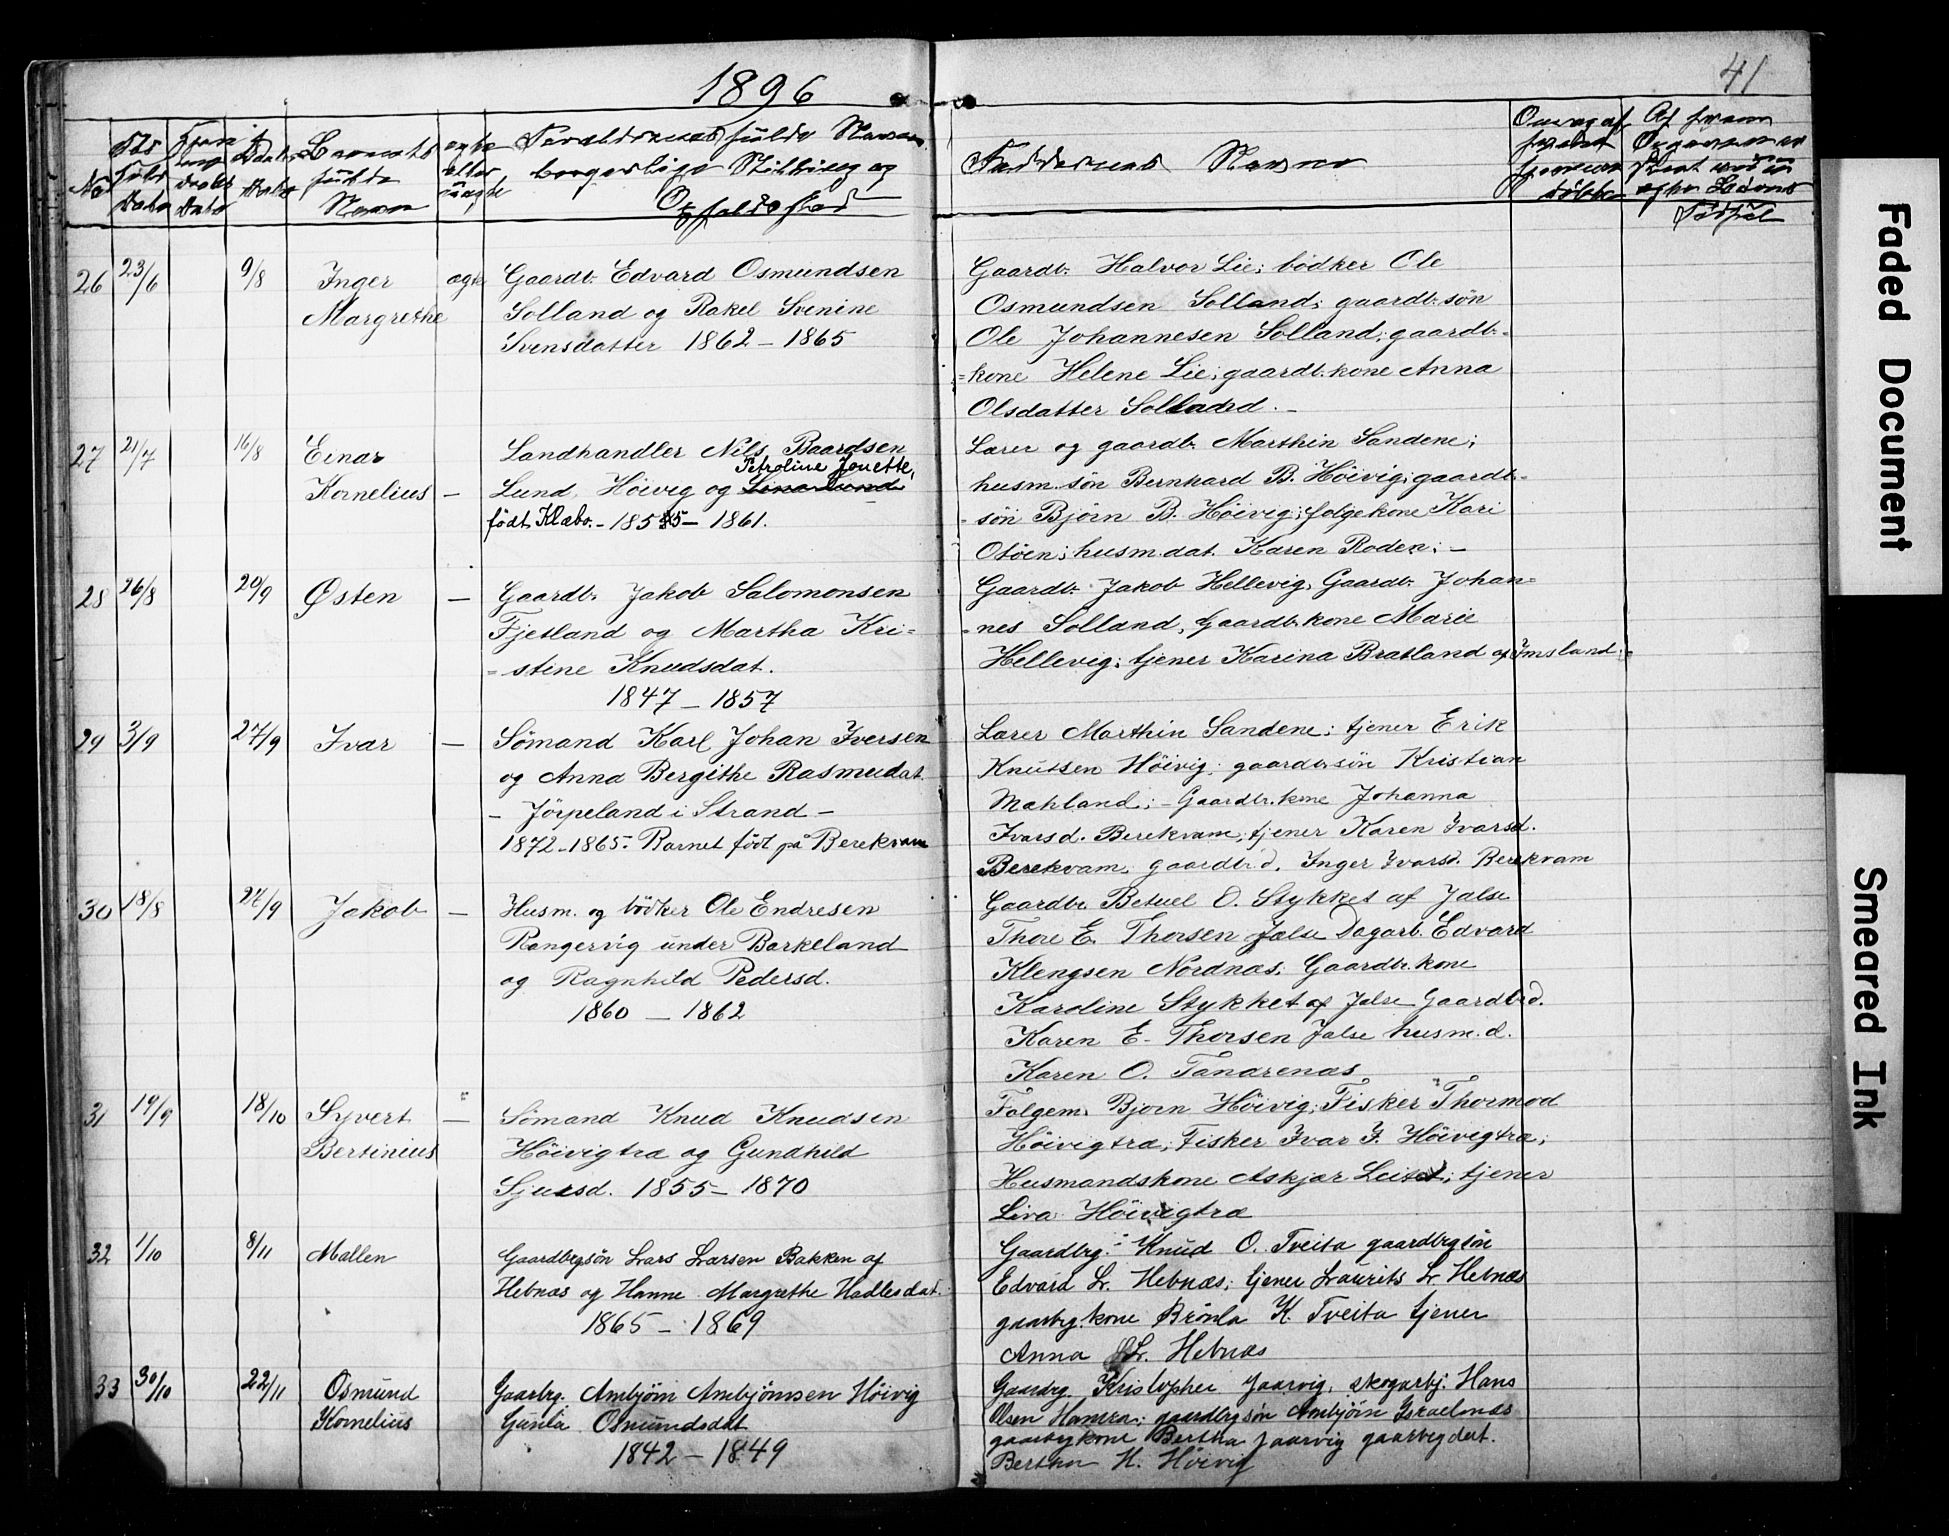 1896
41
No
Barnets
fulde
Navn
Forældrenes fulde Navn,
borgerlige Stilling og
Opholdssted
Faddernes Navne
26 23/6 9/8 Inger ægte Gaardb. Edvard Osmundsen
Margrethe Solland og Rakel Svenine
Svensdatter 1862 - 1865
Gaardb. Halvor Lie; bödker Ole
Osmundsen Solland; gaardb. sön
Ole Johannesen Solland; gaardb.=
=kone Helene Lie; gaardb. kone Anna
Olsdatter Solland. -
27 21/7 16/8 Einar Landhandler Nils Baardsen
Petroline Jonette,
Kornelius - Lund, Höivig og Lina Lund
födt Klæbo. - 1855 - 1861.
Lærer og gaardb. Marthin Sandene;
husm. sön Bernhard B. Höivig; gaardb.=
=sön Björn B. Höivig; folgekone Kari
husm. dat. Karen Roden; -
28 26/8 20/9 Østen - Gaardb. Jakob Salomonsen
Fjetland og Martha Kri=
=stine Knudsdat.
1847 - 1857
Gaardb. Jakob Hellevig, Gaardb. Johan=
=nes Solland, Gaardb. kone Marie
Hellevig; tjener Karina Bratland af Imsland.
29 3/9 27/9 Ivar - Sömand Karl Johan Iversen
og Anna Bergithe Rasmusdat.
- Jörpeland i Strand -
1872 - 1865. Barnet födt på Berekvam
Lærer Marthin Sandene; tjener Erik
Knutsen Höivig; gaardb. sön Kristian
Mæhland; - Gaardbr. kone Johanna
Ivarsd. Berekvam; tjener Karen Ivarsd.
Berekvam, gaardb. d. Inger Ivarsd. Berekvam
30 18/8 27/9 Jakob - Husm. og bödker Ole Endresen
Rangervig under Barkeland
og Ragnhild Pedersd.
1860 - 1862
Gaardbr. Betuel O. Stykket af Jalse
Thore E. Thorsen Jalse Dagarb. Edvard
Klengsen Nordnæs; Gaardbr. kone
Karoline Stykket af Jalse Gaardb. d.
Karen E. Thorsen Jalse husm. d.
Karen O. Tandrenæs
31 19/9 18/10 Syvert - Sömand Knud Knudsen
Bertinius Höivigtræ og Gundhild
Sjursd. 1855 - 1870
Følgem. Bjorn Höivig; Fisker Thormod
Höivigtræ; Fisker Ivar I. Höivigtræ;
Husmandskone Askjær tjener
Liva Höivigtræ
32 1/10 8/11 Mallen Gaardbrgsön Lars Larsen Bakken af
Hebnæs og Hanne Margrethe Hadlesdat.
1865 - 1869
Gaardbrg. Knud O. Tveita gaardbrgsön
Edvard L. Hebnæs; tjener Laurits L. Hebnæs
gaarbrg. kone Brönla K. Tveita tjener
Anna L. Hebnæs
33 30/10 22/11 Osmund Gaarbrg. Ambjörn Ambjörnsen Höivig
Kornelius Gunla Osmundsdat
1842 - 1849
Gaardbrg Kristopher Jaarvig, skogarbj. Hans
Olsen Hamra; gaardbrgsön Ambjörn Israelsnæs
gaarbrgkone Bertha Jaarvig gaarbrgdat.
Bertha H. Höivig
Faded Document
Smeared Ink